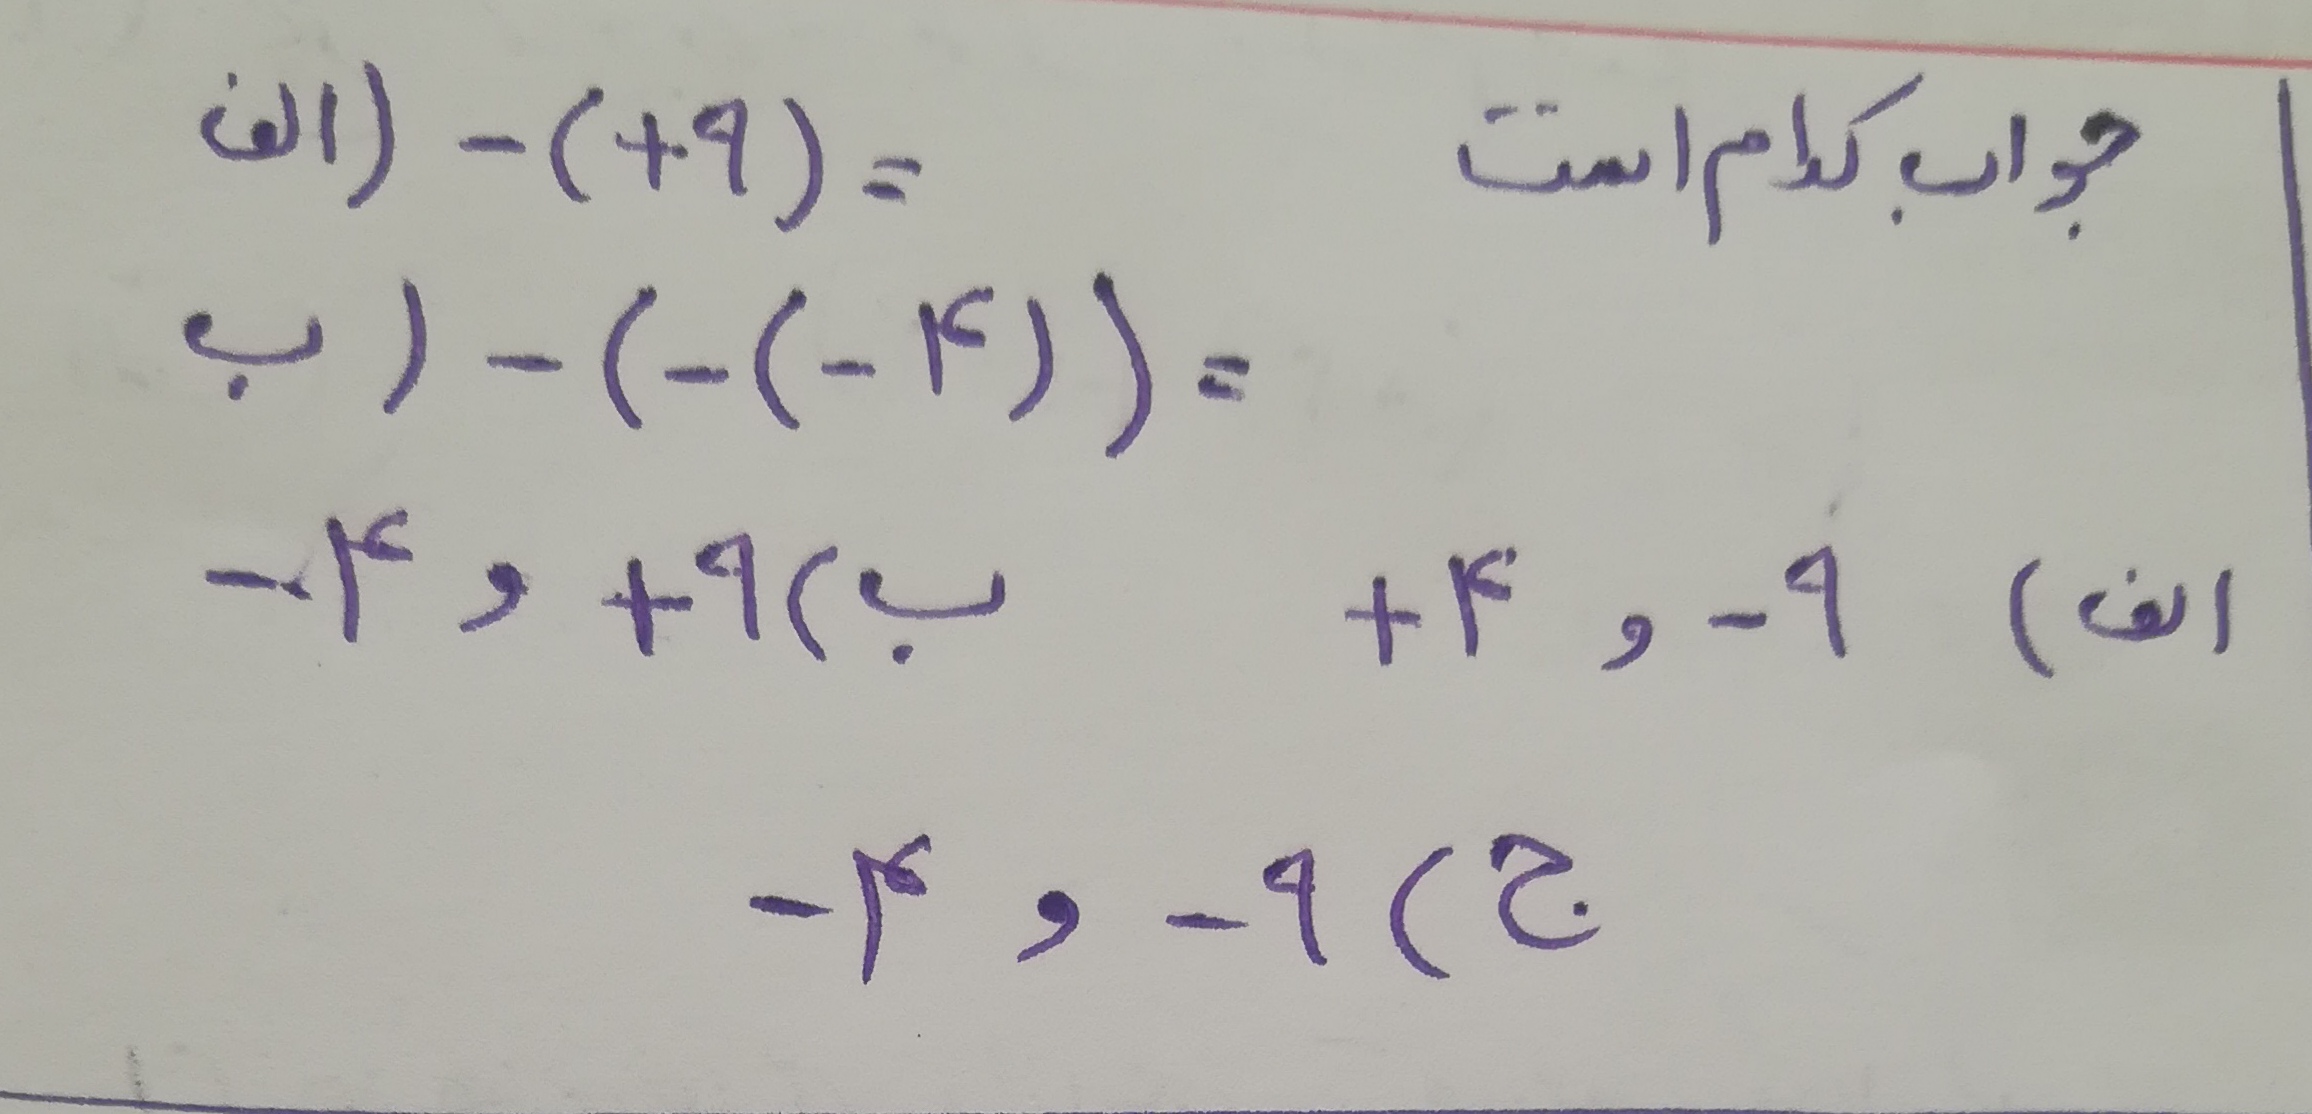 جواب کدام است الف) -(+۹)=
ب) -(-(-۴))=
الف) -۹ و +۴ ب) +۹ و -۴
ج) -۹ و -۴